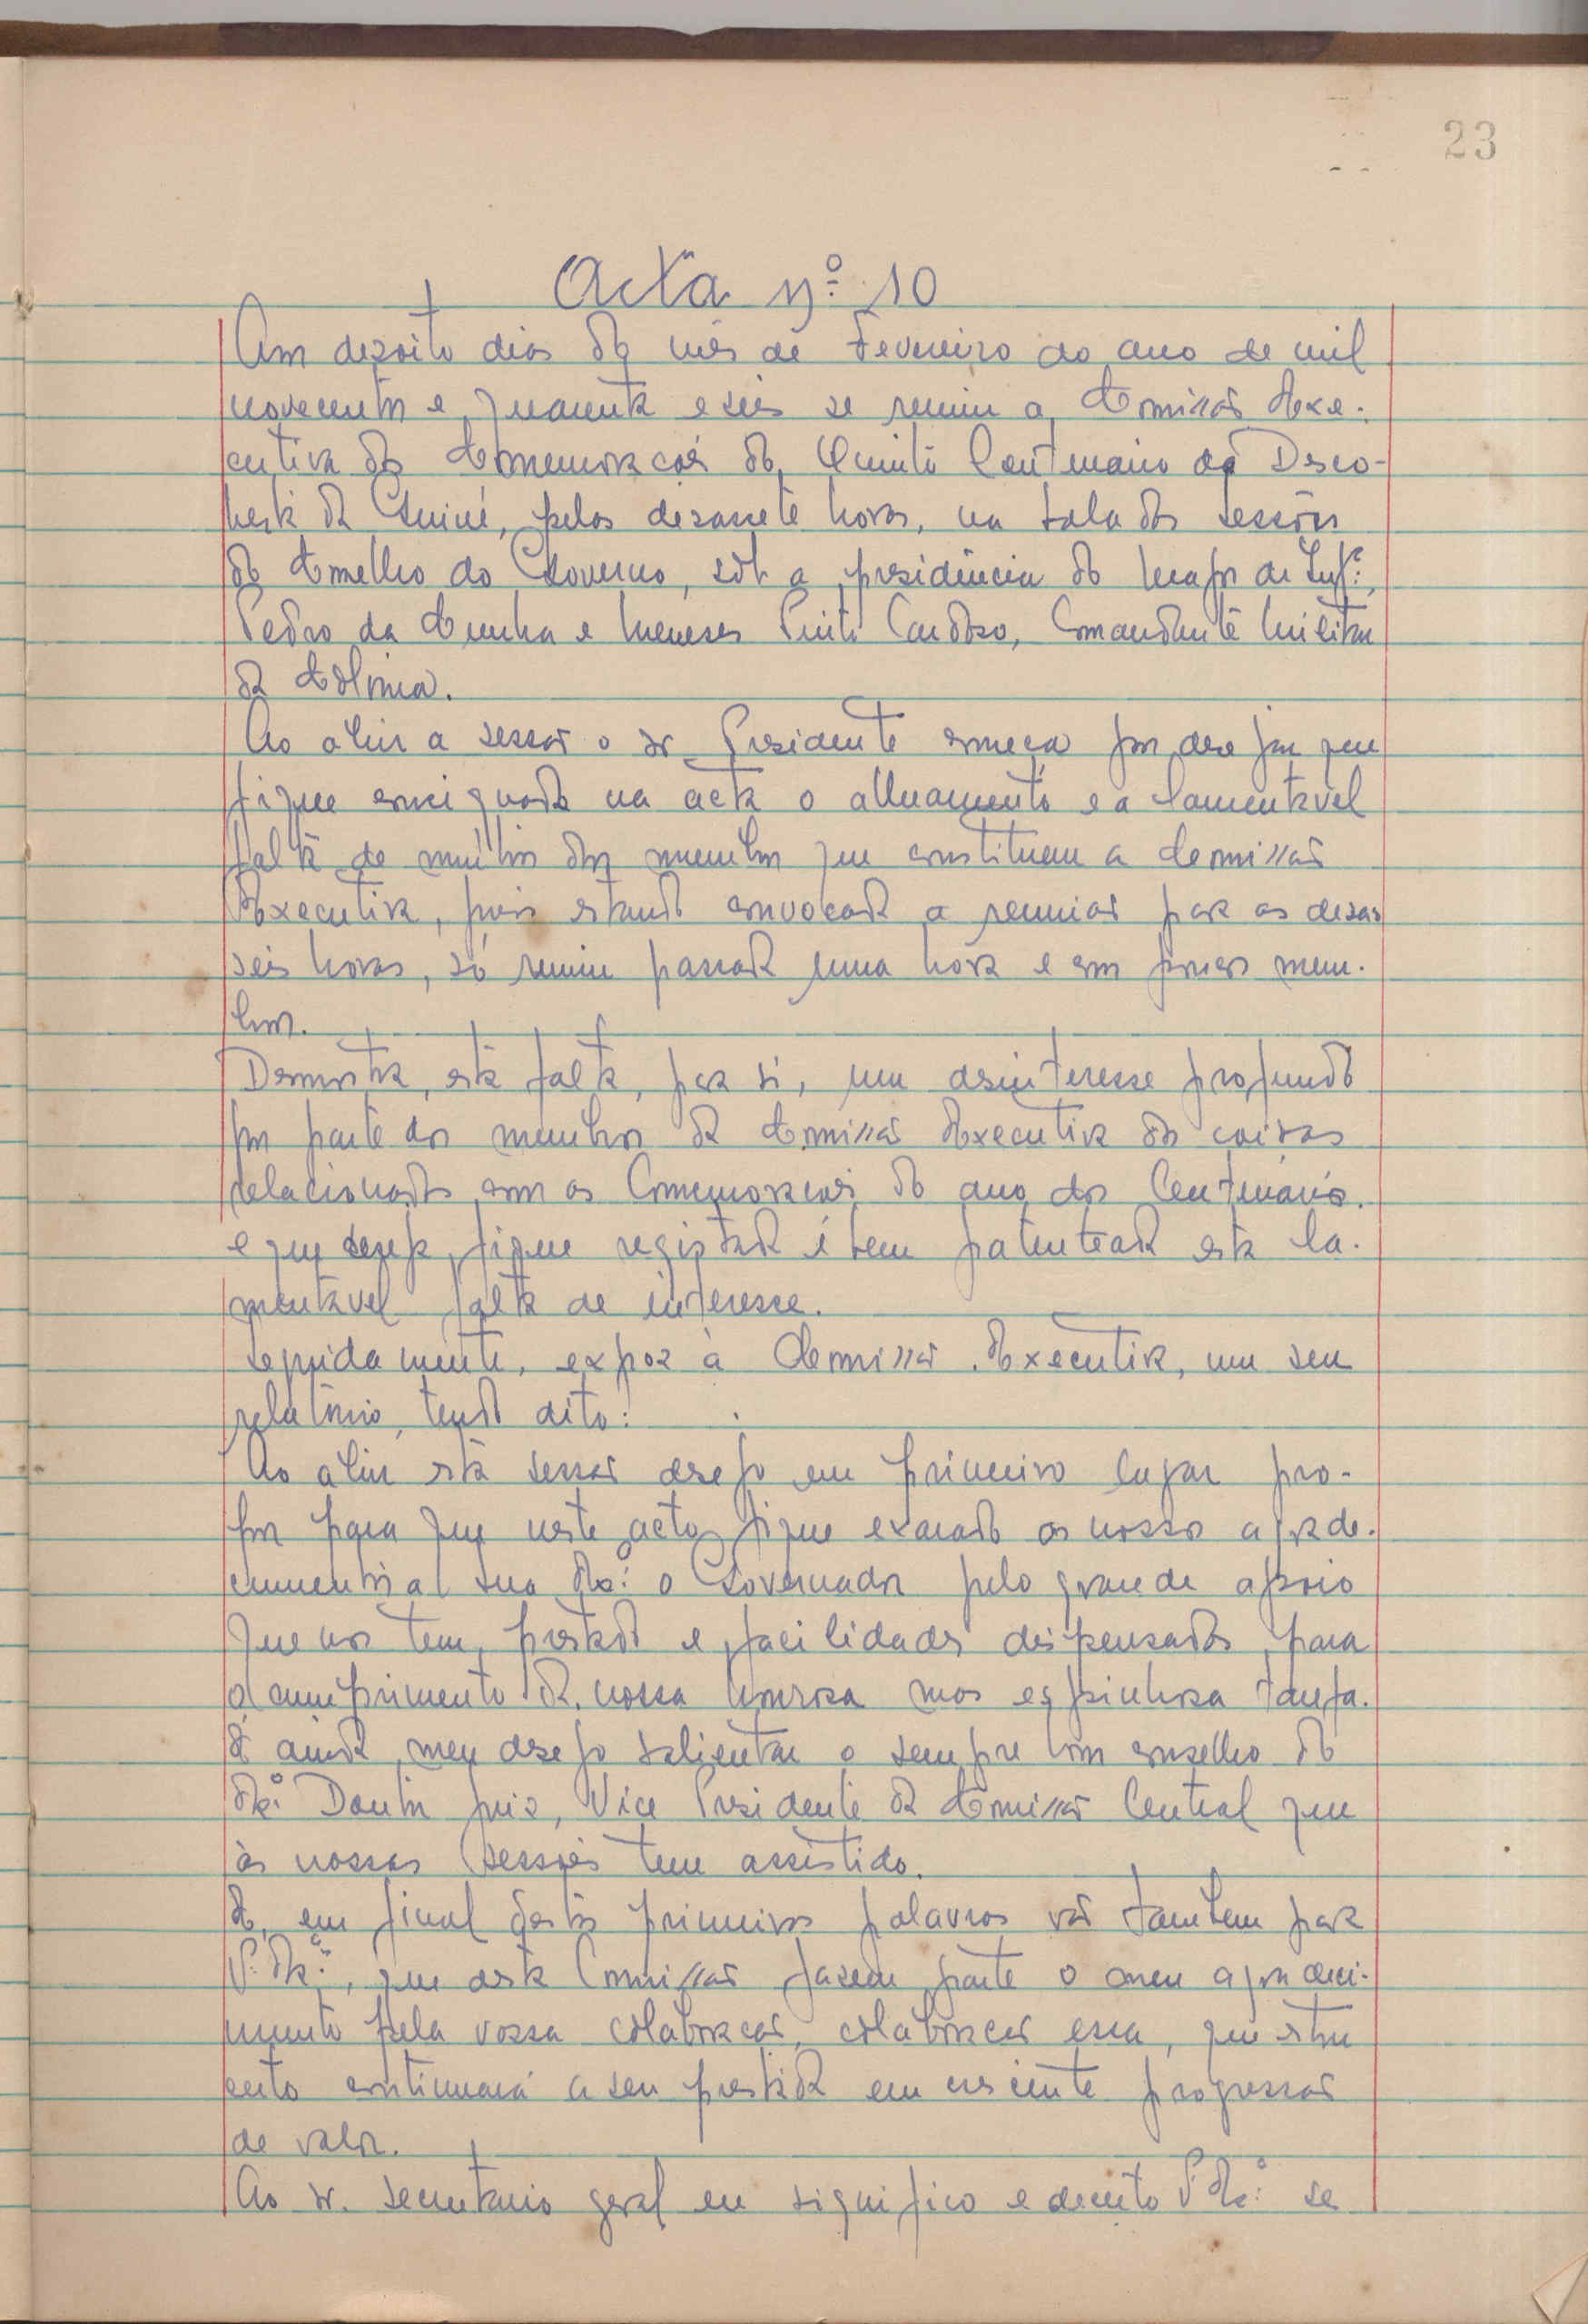 23
Acta nº 10
Aos dezoito dias do mês de Fevereiro do ano de mil
novecentos e quarenta e seis se reuniu a Comissão Exe-
cutiva das Comemorações do Quinto Centenário da Desco-
berta da Guiné, pelas dezassete horas, na sala das sessões
do Conselho do Governo, sob a presidência do Major de Infª.,
Pedro da Cunha e Meneses Pinto Cardoso, Comandante Militar
da Colónia.
Ao abrir a sessão o sr Presidente começa por desejar que
fique consignado na acta o alheamento e a lamentável
falta de muitos dos membros que constituem a Comissão
Executiva, pois estando convocada a reunião para as dezas
seis horas, só reuniu passada uma hora e com poucos mem-
bros.
Demonstra, esta falta, por si, um desinteresse profundo
por parte dos membros da Comissão Executiva das coisas
relacionadas com as Comemorações do ano dos Centenários.
e que deseja fique registada é bem patenteada esta la-
mentável falta de interesse.
Seguidamente, expoz à Comissão Executiva, um seu
relatório, tendo dito:
Ao abrir esta sessão desejo em primeiro lugar pro-
por para que neste acto fique exarado os nossos agrade-
cimentos a Sua Exª. o Governador pelo grande apoio
que nos tem prestado e facilidades dispensadas, para
o cumprimento da nossa honrosa mas espinhosa tarefa.
É ainda meu desejo salientar o sempre bom conselho do
Exº. Doutor Juiz, Vice Presidente da Comissão Central que
às nossas sessões tem assistido.
E, em final destas primeiras palavras vão tambem para
V. Exªs., que desta Comissão fazem parte o meu agradeci-
mento pela vossa colaboração, colaboração essa, que estou
certo continuará a ser prestada em crescente progressão
de valor.
Ao sr. secretario geral eu significo e decerto V. Exª. se